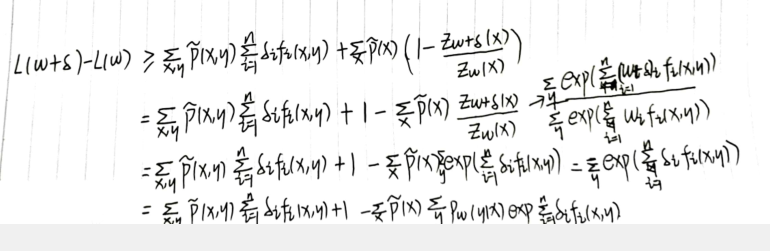 L(w+δ)-L(w) ≥ Σ_{x,y} P̃(x,y) Σ_{i=1}^{n} δ_i f_i(x,y) + Σ_x P̃(x) (1 - Z_{w+δ}(x) / Z_w(x))
= Σ_{x,y} P̃(x,y) Σ_{i=1}^{n} δ_i f_i(x,y) + 1 - Σ_x P̃(x) Z_{w+δ}(x) / Z_w(x) → Σ_y exp(Σ_{i=1}^{n} (w+δ)_i f_i(x,y)) / Σ_y exp(Σ_{i=1}^{n} w_i f_i(x,y))
= Σ_{x,y} P̃(x,y) Σ_{i=1}^{n} δ_i f_i(x,y) + 1 - Σ_x P̃(x) Σ_y exp(Σ_{i=1}^{n} δ_i f_i(x,y)) = Σ_y exp(Σ_{i=1}^{n} δ_i f_i(x,y))
= Σ_{x,y} P̃(x,y) Σ_{i=1}^{n} δ_i f_i(x,y) + 1 - Σ_x P̃(x) Σ_y P_w(y|x) exp Σ_{i=1}^{n} δ_i f_i(x,y)